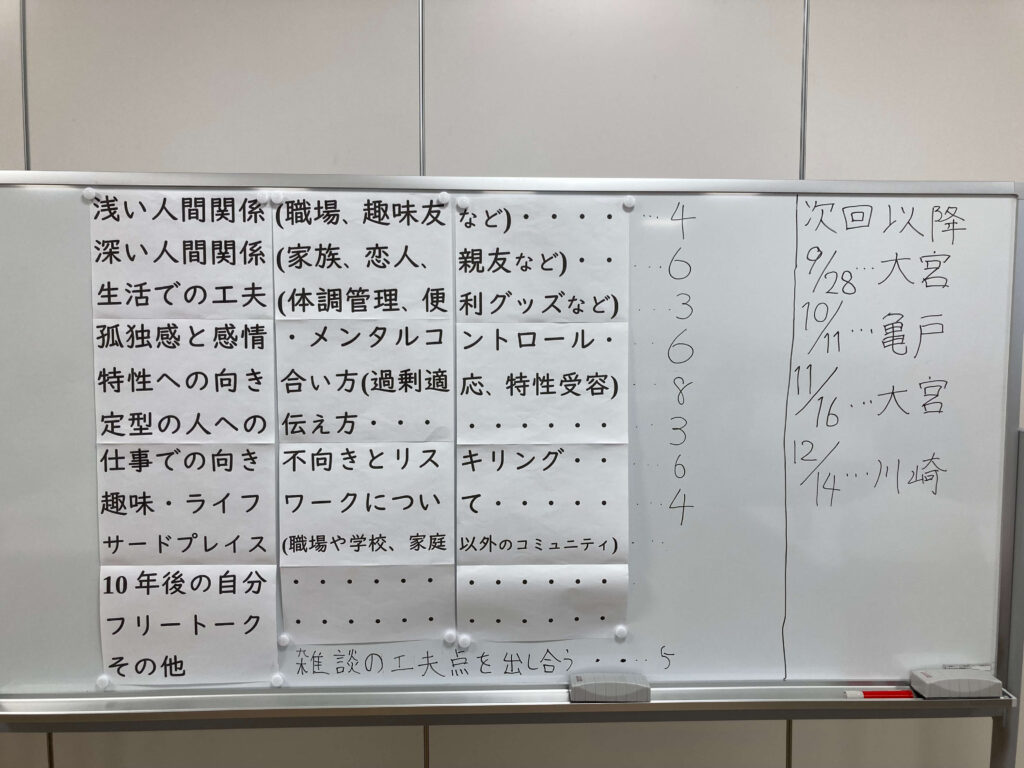 浅い人間関係(職場、趣味友など)・・・・…4
深い人間関係(家族、恋人、親友など)・・…6
生活での工夫(体調管理、便利グッズなど)…3
孤独感と感情・メンタルコントロール・…6
特性への向き合い方(過剰適応、特性受容)…8
定型の人への伝え方・・・・・・・・・…3
仕事での向き不向きとリスキリング・・…6
趣味・ライフワークについて・・・・・…4
サードプレイス(職場や学校、家庭以外のコミュニティ)…
10年後の自分・・・・・・・・・・・・
フリートーク・・・・・・・・・・・・
その他 雑談の工夫点を出し合う・・…5
次回以降
9/28…大宮
10/11…亀戸
11/16…大宮
12/14…川崎